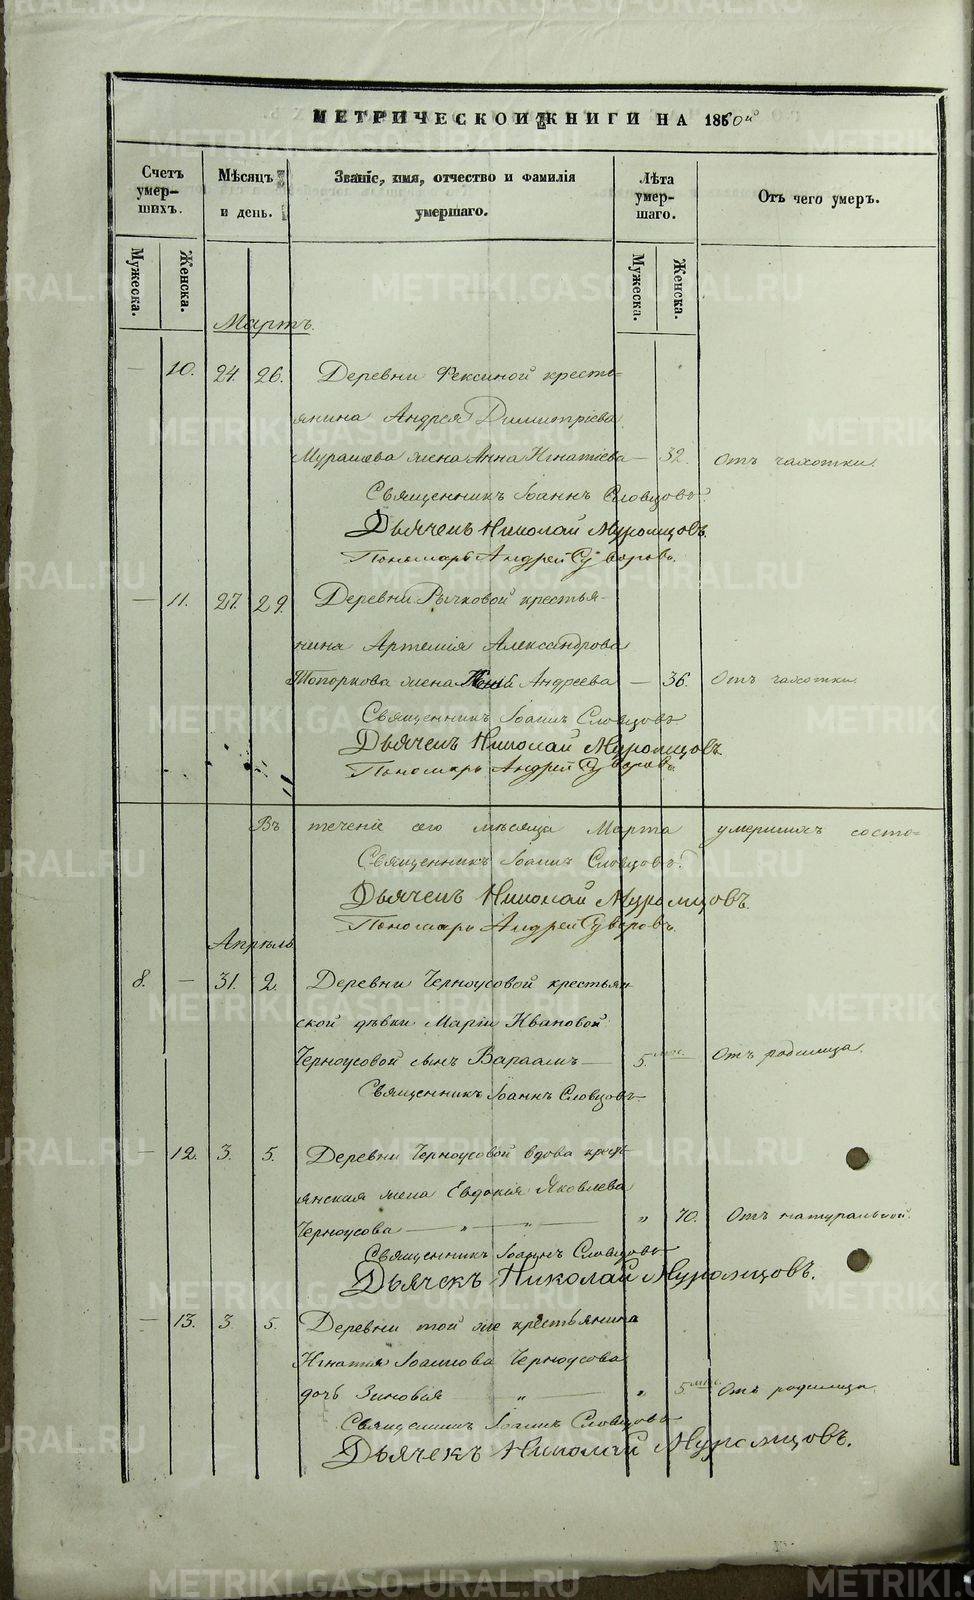 МЕТРИЧЕСКОЙ КНИГИ НА 1860й
Счетъ умер-шихъ.
Мѣсяцъ и день.
Званіе, имя, отчество и фамилія умершаго.
Лѣта умер-шаго.
Отъ чего умеръ.
Мужеска.
Женска.
Мужеска.
Женска.
Мартъ.
— 10. 24. 26. Деревни Фексиной кресть-
янина Андрея Димитріева
Мурашева жена Анна Игнатіева — 32. Отъ чахотки.
Священникъ Іоаннъ Словцовъ.
Дьячекъ Николай Муромцовъ.
Пономарь Андрей Суворовъ.
— 11. 27. 29. Деревни Рычковой крестья-
нина Артемія Александрова
Топоркова жена Андреева — 36. Отъ чахотки.
Священникъ Іоаннъ Словцовъ
Дьячекъ Николай Муромцовъ.
Пономарь Андрей Суворовъ.
Въ теченіе сего мѣсяца Марта умершихъ состо-
Священникъ Іоаннъ Словцовъ.
Дьячекъ Николай Муромцовъ.
Пономарь Андрей Суворовъ.
Апрѣль
8. — 31. 2. Деревни Черноусовой крестьян-
ской дѣвки Маріи Ивановой
Черноусовой сынъ Варлаамъ — 5. мѣс. Отъ родимца.
Священникъ Іоаннъ Словцовъ
— 12. 3. 5. Деревни Черноусовой вдова крест-
янская жена Евдокія Яковлева
Черноусова — " — " — " 70. Отъ натуральной.
Священникъ Іоаннъ Словцовъ
Дьячекъ Николай Муромцовъ.
— 13. 3. 5. Деревни той же крестьянина
Игнатія Іоаннова Черноусова
дочь Зиновія — " — " 5 мѣс. Отъ родимца.
Священникъ Іоаннъ Словцовъ
Дьячекъ Николай Муромцовъ.
METRIKI.GASO-URAL.RU